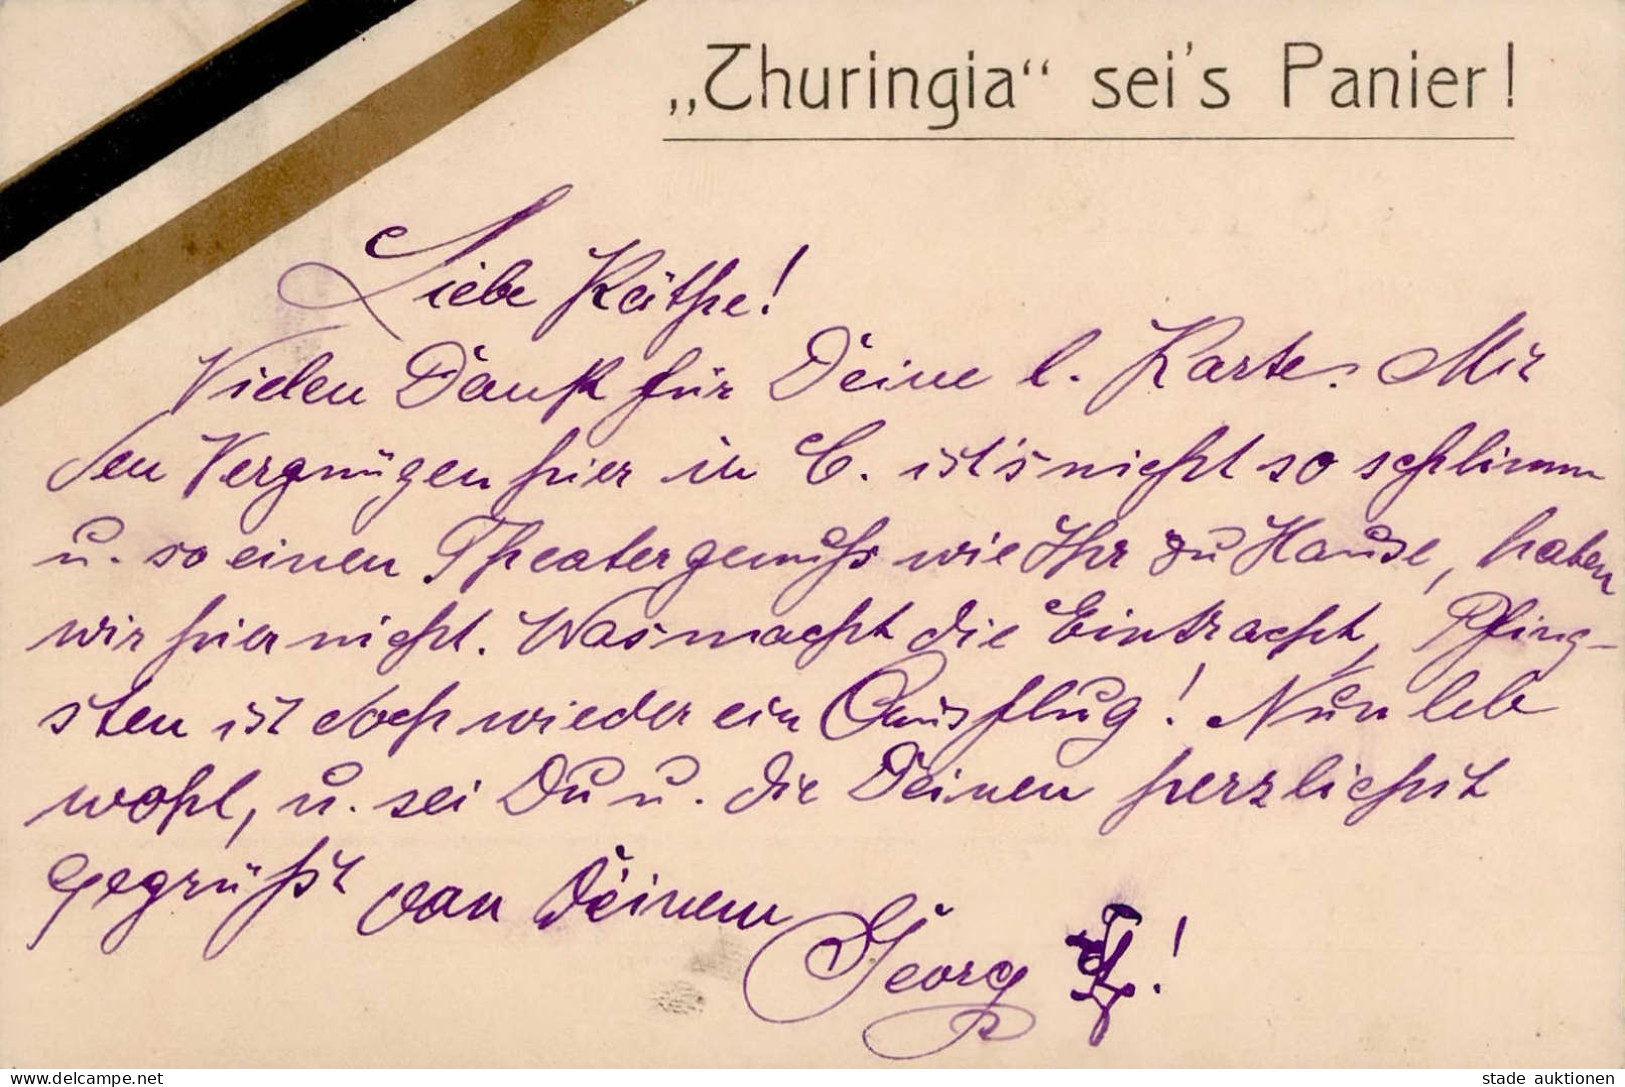 „Thuringia“ sei's Panier!
Liebe Käthe!
Vielen Dank für Deine l. Karte. Mit
den Vergnügen hier in C. ist's nicht so schlimm
u. so einen Theatergenuss wie Ihr zu Hause, haben
wir hier nicht. Was macht die Eintracht, Pfing-
sten ist doch wieder ein Ausflug! Nun leb
wohl, u. sei Du u. die Deinen herzlichst
gegrüßt von Deinem
Georg
stade auktionen
www.delcampe.net